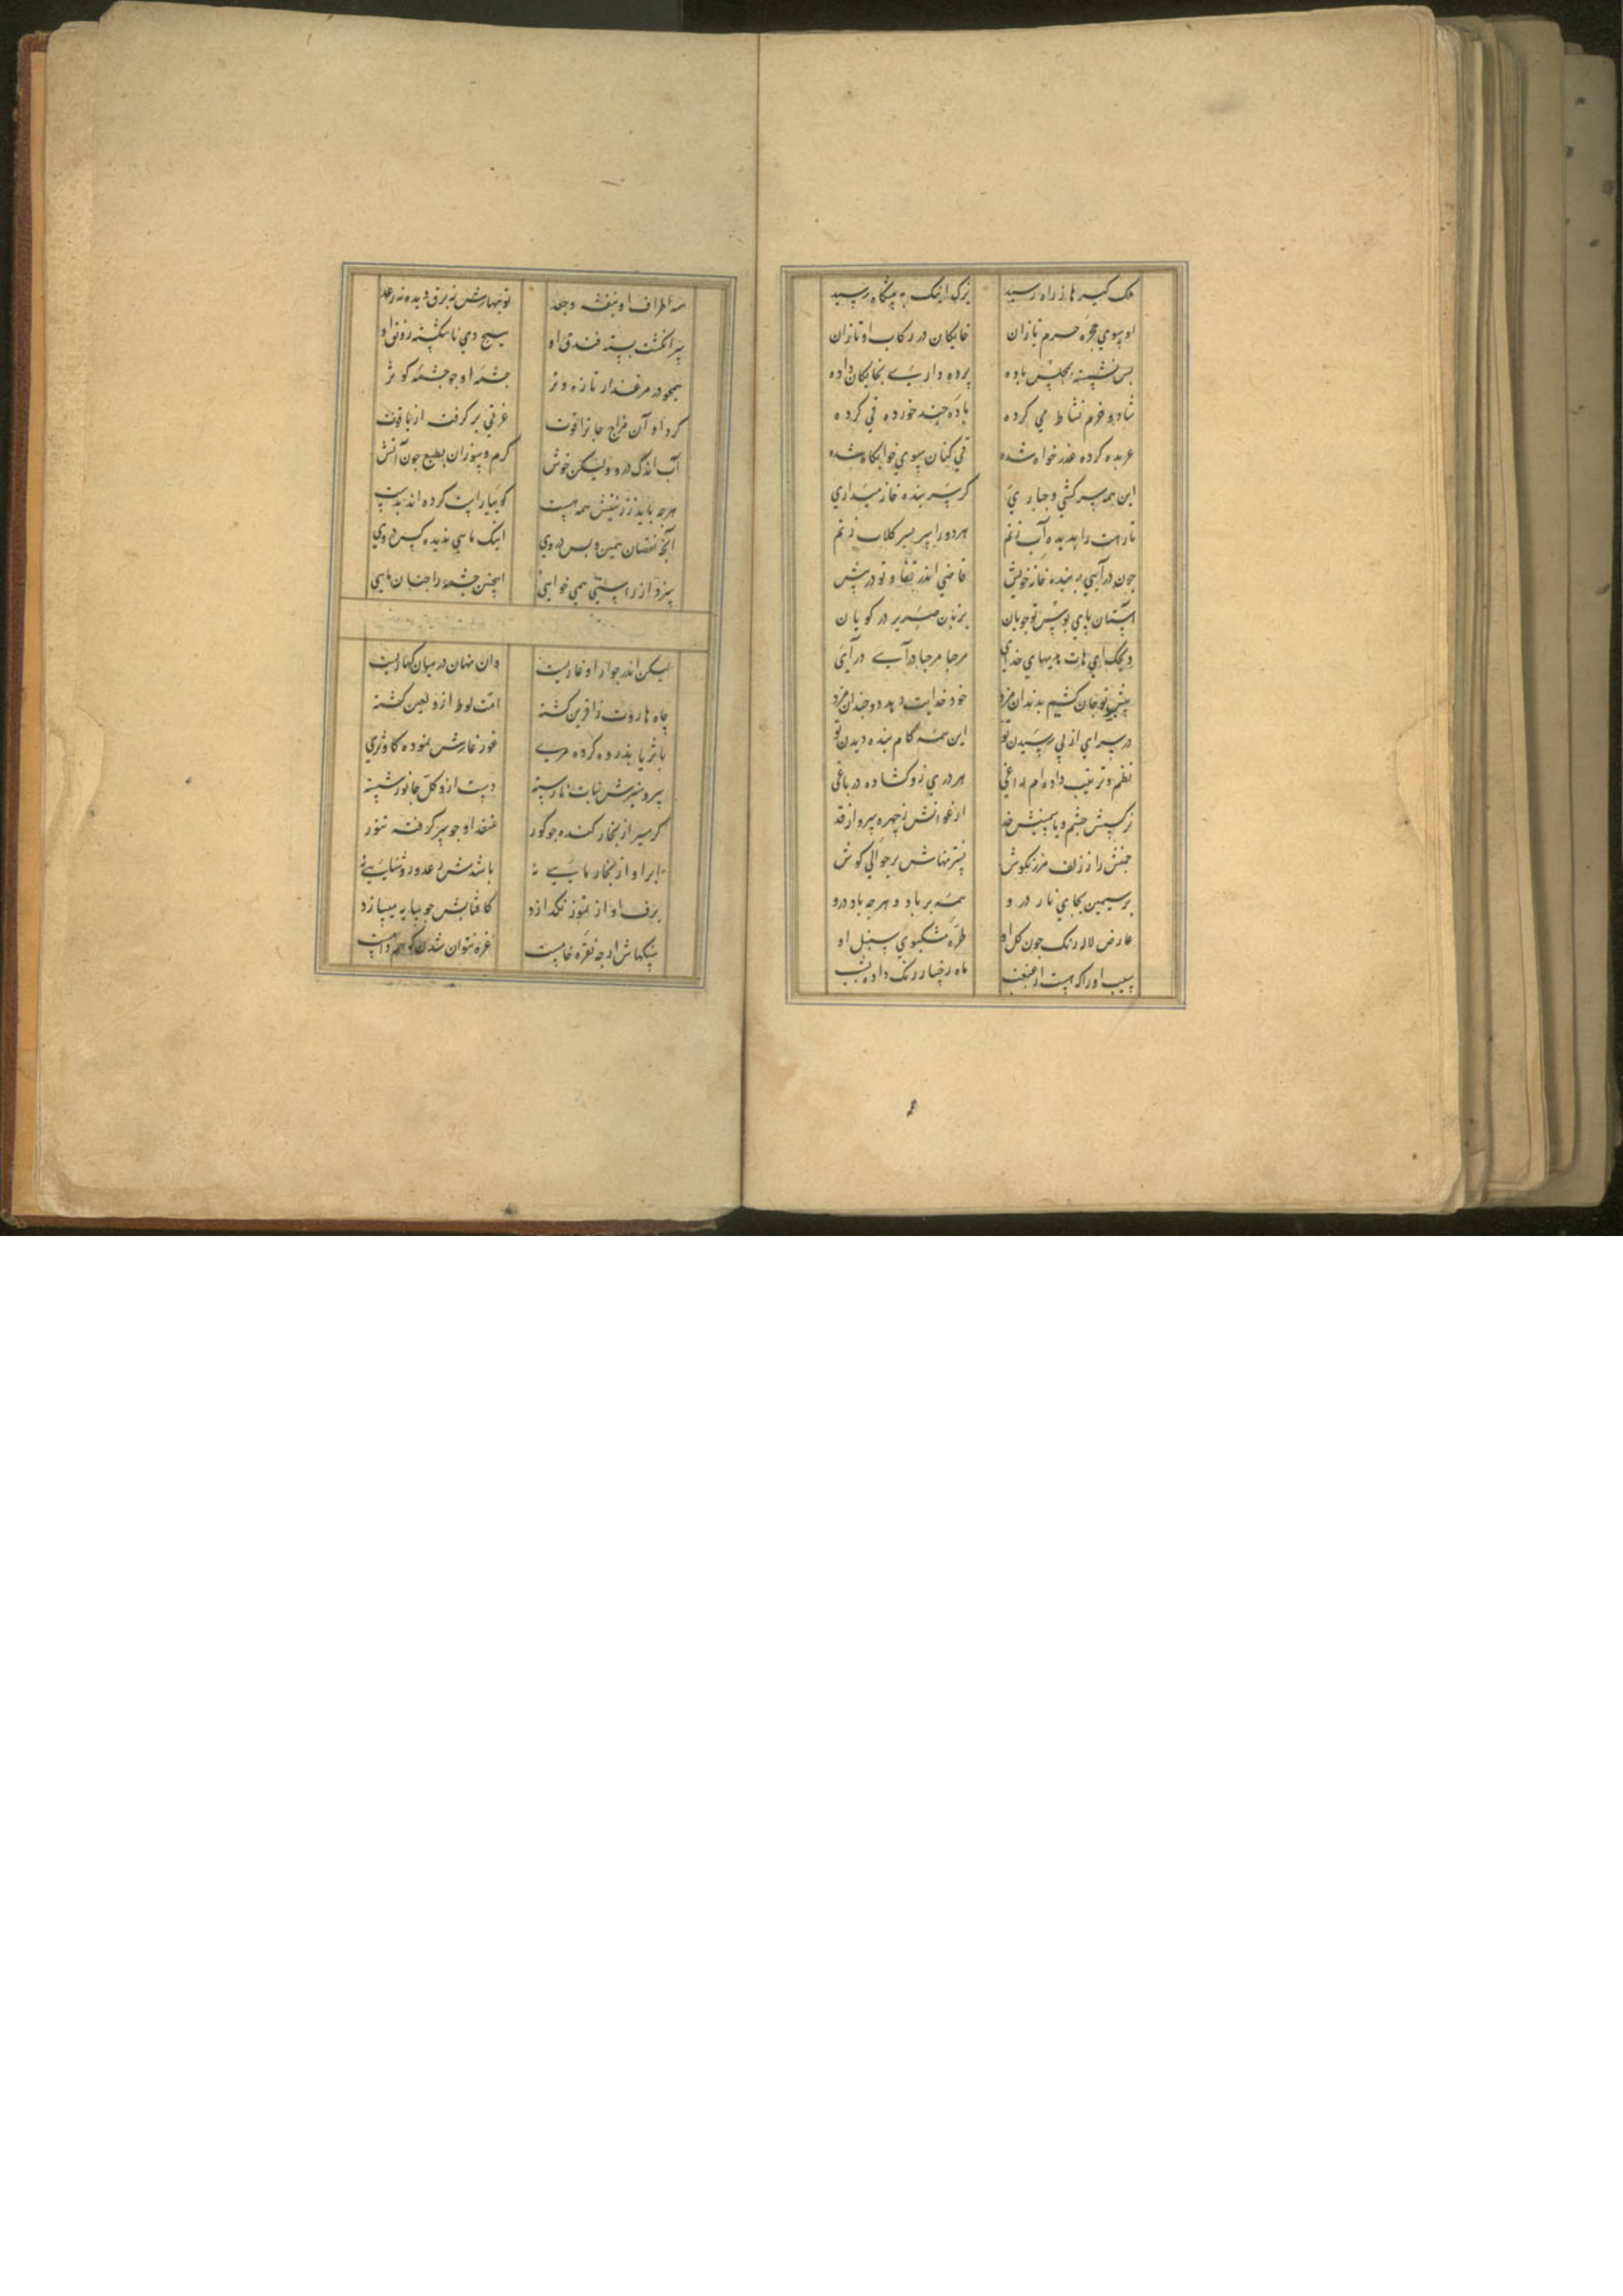 ملک کیر ما ز راه رسید ترک اینک به پیشگاه رسید
او بسوی حجره حرم تازان خایکان در رکاب او تازان
بس نشسته بمجلس باده پرده داری بخایکان داده
شاد و خرم نشاط می کرده باده چند خورده قی کرده
عربده کرده عذر خواه شده قی کنان بسوی خوابگاه شده
این همه سرکشی و جباری کر سر بنده خانه میداری
تا رهت را بدیده آب زنم هر دو را بر سر کلاب زنم
چون درآیی به بنده خانه خویش قاضی اندر قفا و تو در پیش
آستان پای بوس تو جویان بر زبان صریر در کویان
مرحبا مرحبا درآی درآی
پیش تو جان کشیم بدندان مزد خود خدایت دهد دو چندان مزد
در سرای از پی رسیدن تو این همه کام بنده دیدن تو
نظم و ترتیب داده ام باغی هر دری زو کشاده در باغی
نرکسش چشم و یاسمینش خد ارغوانش ز چهره سرو از قد
چمنش را ز زلف مرزنکوش نسترنهاش بر حوالی کوش
بر سیمین بجای نار در و همه بر باد و هرچه باد درو
عارض لاله رنک چون کل او طره مشکبوی سنبل او
سیب او را که هست از غبغب ماه رخسار رنک داده بشب
همه اطراف او بنفشه و جعد نوبهارش نه برق دیده نه رعد
سر انکشت بسته فندق او هیچ دی ناشکسته رونق او
همچو در مرغزار تازه و تر چشمه او چو چشمه کوثر
کرد او آن مزاج جانرا قوت عرقی بر کرفت از یاقوت
آب اندک درو ولیکن خوش کرم و سوزان بطبع چون آتش
هرچه باید ز زینتش همه هست کوییا راست کرده اند بدست
آنجا نقصان همین و بس در وی اینک ماهی ندیده کس در وی
سزد از راستی همی خواهی اینچنین چشمه را چنان ماهی
لیکن اندر جوار او غاریست وان نهان در میان کهساریست
چاه هاروت زافرین کشته امت لوط ازو لعین کشته
با ثریا بذروه کرده مری غور غارش نموده کاو ثری
بر و سرش نبات نارسته دست ازو کل جانور شسته
کرمسیر از بخار کنده چو کور منفذ او چو سر کرفته تنور
ابر او از بخار مایی نه
برف او از تموز نکدازد کافتابش چو سایه میسازد
سنکهاش ارچه نقره خامست غره نتوان شدن